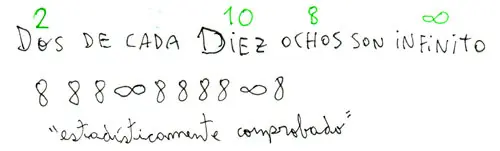 2 10 8 ∞
DOS DE CADA DIEZ OCHOS SON INFINITO
8 8 8 ∞ 8 8 8 8 ∞ 8
"estadísticamente comprobado"